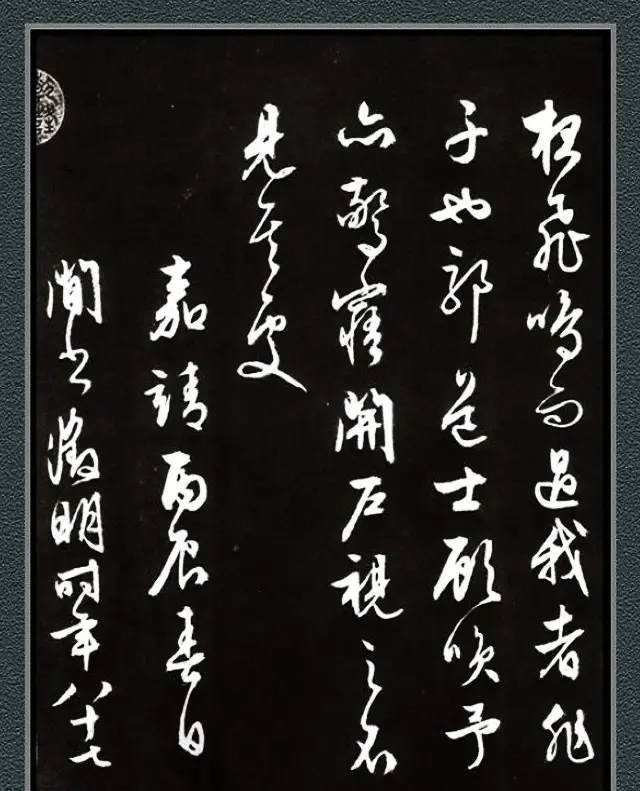 夜飛鳴而過我者非
子也邪道士顧咲予
亦驚寤開戶視之不
見其處
嘉靖丙辰春日
閒書徵明時年八十七